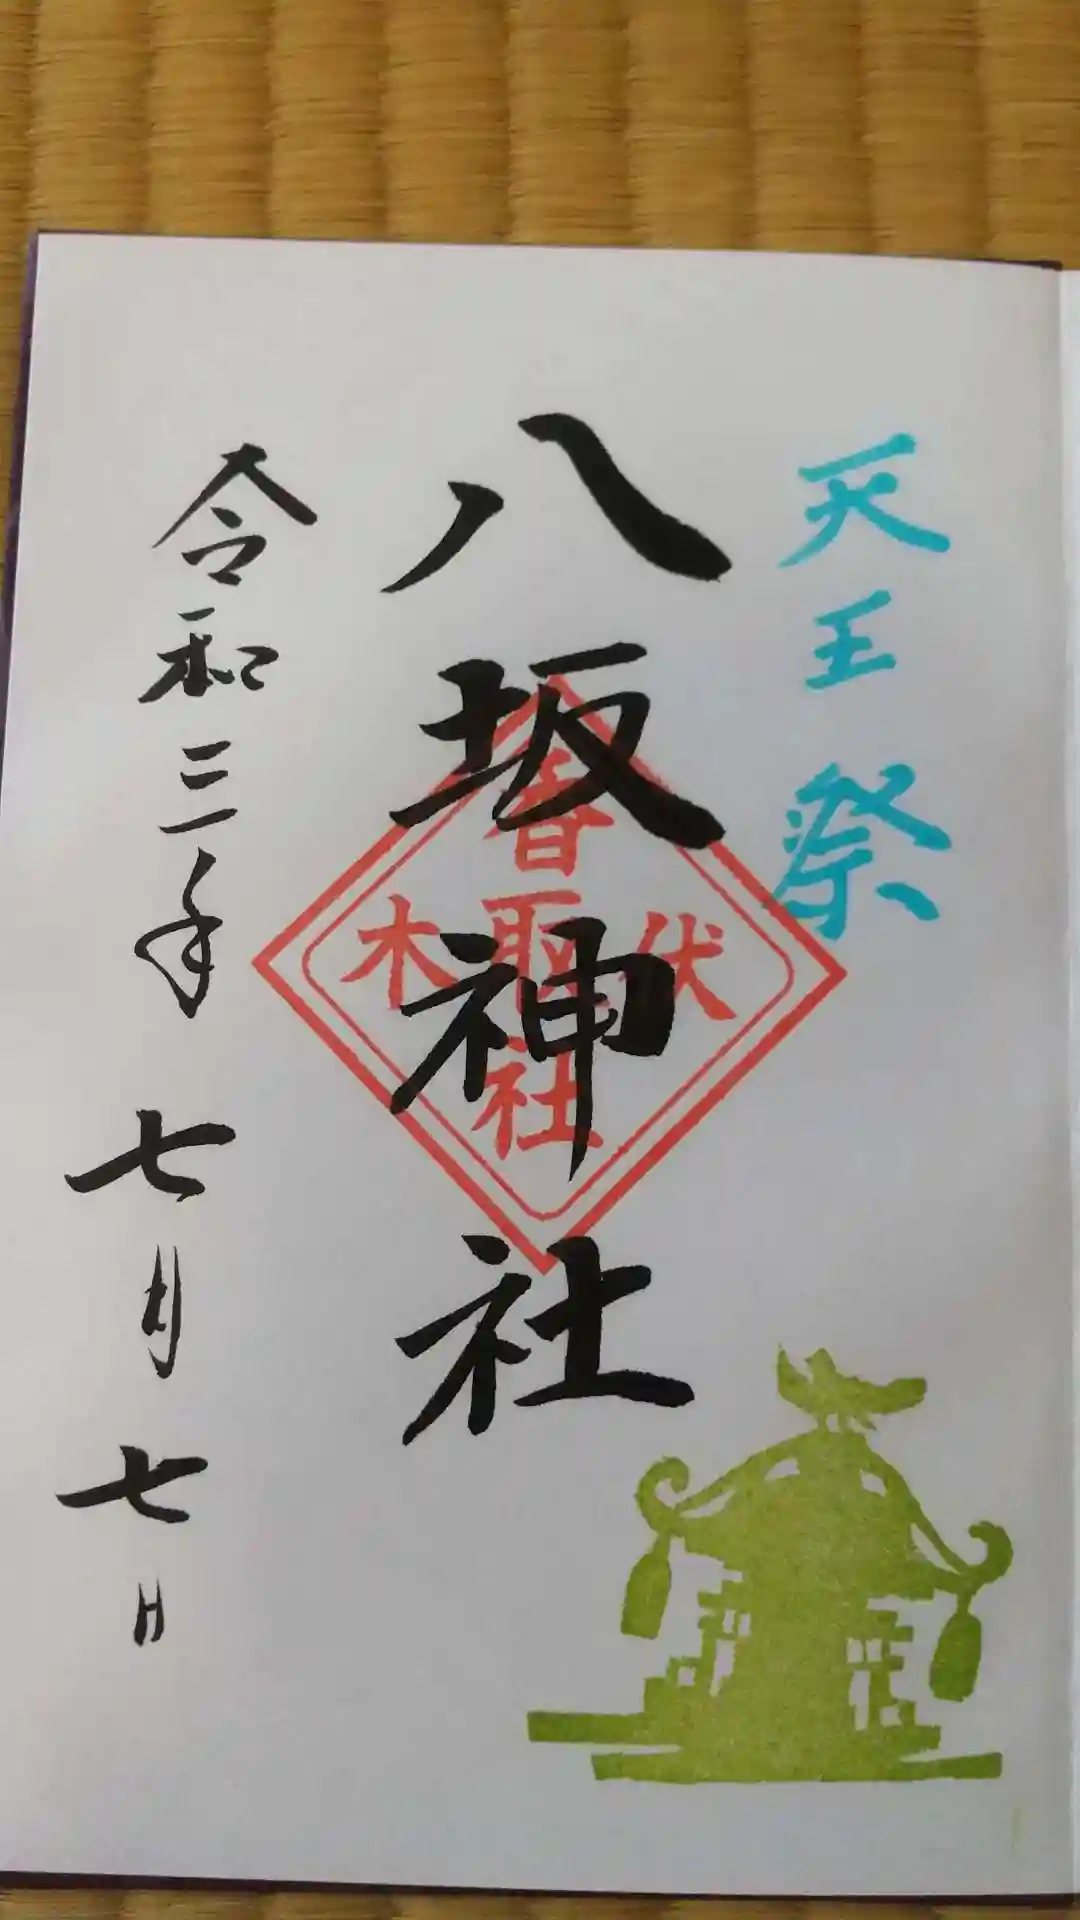 天王祭
八坂神社
伏木
香取社
令和三年七月七日